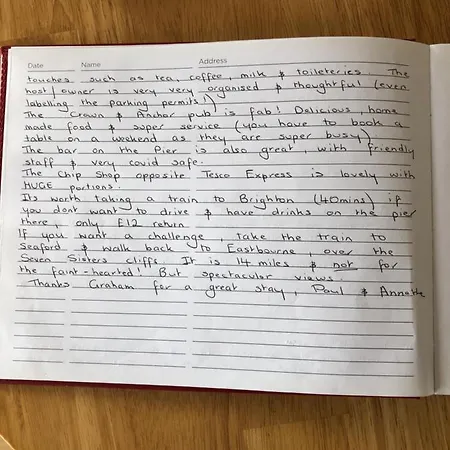 Date Name Address
touches such as tea, coffee, milk & toileteries. The
host/owner is very very organised & thoughtful (even
labelling the parking permits!)
The Crown & Anchor pub is fab! Delicious, home
made food & super service (you have to book a
table on a weekend as they are super busy)
The bar on the Pier is also great, with friendly
staff & very covid safe.
The Chip Shop opposite Tesco Express is lovely with
HUGE portions.
Its worth taking a train to Brighton (40mins) if
you dont want to drive & have drinks on the pier
there, only £12 return
If you want a challenge, take the train to
Seaford & walk back to Eastbourne, over the
Seven Sisters cliffs. It is 14 miles & not for
the faint-hearted! But spectacular views.
Thanks Graham for a great stay, Paul & Annette